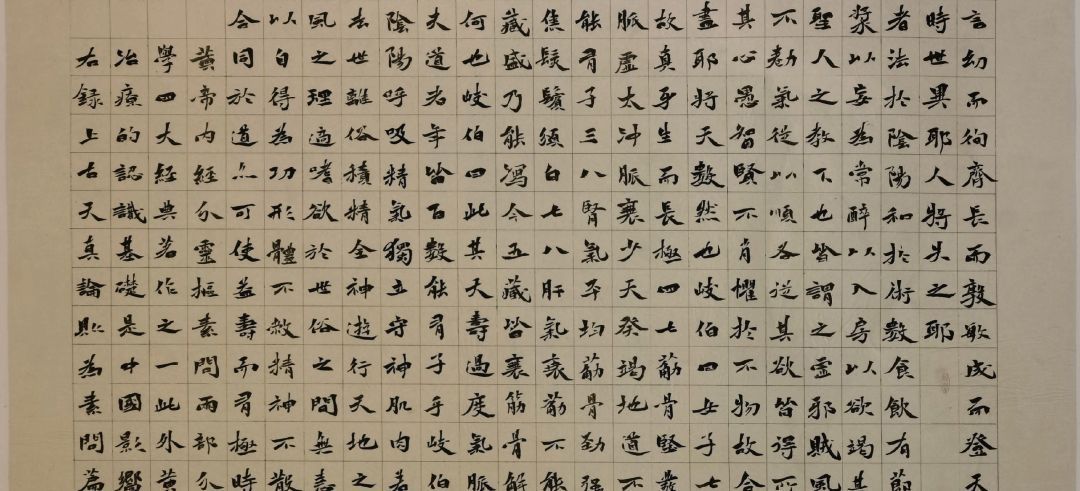 言幼而徇齊長而敦敏成而登天
時世異耶人將失之耶
者法於陰陽和於術數食飲有節
漿以妄為常醉以入房以欲竭其
聖人之教下也皆謂之虛邪賊風
不勌氣從以順各從其欲皆得所
其心愚智賢不肖懼於不物故合
盡耶將天數然也岐伯曰女子七
故真身生而長極四七筋骨堅髮
脈虛太沖脈衰少天癸竭地道不
能有子三八腎氣平均筋骨勁強
焦髮鬢須白七八肝氣衰筋不能
藏盛乃能瀉今五藏皆衰筋骨解
何也岐伯曰此其天壽過度氣脈
夫道者年皆百數能有子乎岐伯
陰陽呼吸精氣獨立守神肌肉若
去世離俗積精全神遊行天地之
風之理適嗜欲於世俗之間無恚
以自得為功形體不敝精神不散
今同於道亦可使益壽而有極時
黃帝內經分靈樞素問兩部分
學四大經典著作之一此外黃
治療的認識基礎是中國影響
右錄上古天真論此為素問篇